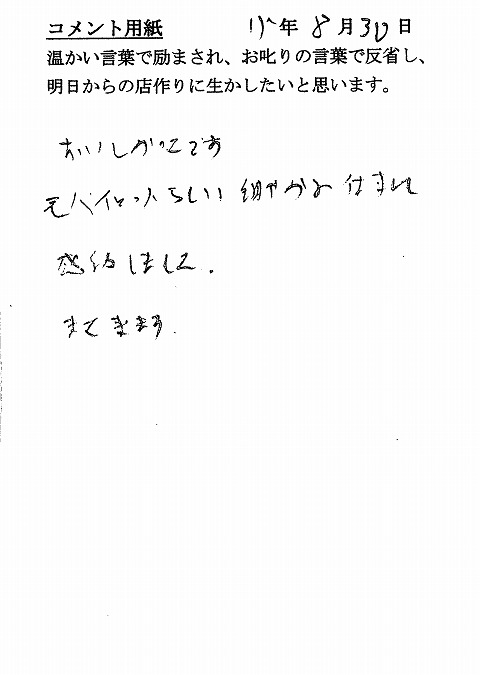 コメント用紙 年 8月30日
温かい言葉で励まされ、お叱りの言葉で反省し、
明日からの店作りに生かしたいと思います。
おいしかったです
らしい 細やかな
しました.
またきます.